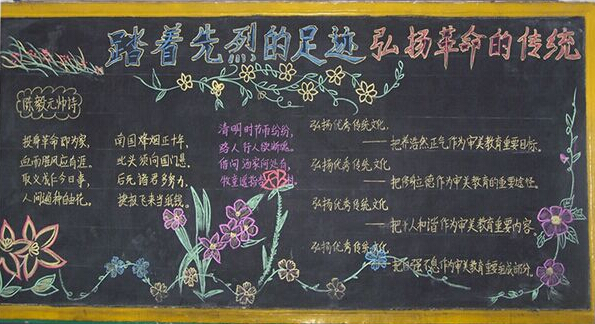 踏着先烈的足迹 弘扬革命的传统
陈毅元帅诗
投身革命即为家，
血雨腥风应有涯。
取义成仁今日事，
人间遍种自由花。
南国烽烟正十年，
此头须向国门悬。
后死诸君多努力，
捷报飞来当纸钱。
清明时节雨纷纷，
路人行人欲断魂。
借问酒家何处有，
牧童遥指
弘扬优秀传统文化，
——把养浩然正气作为审美教育重要目标。
弘扬优秀传统文化
——把传统立德作为审美教育的重要途径。
弘扬优秀传统文化
——把个人和谐作为审美教育重要内容。
弘扬优秀传统文化
——把自强不息作为审美教育重要组成部分。